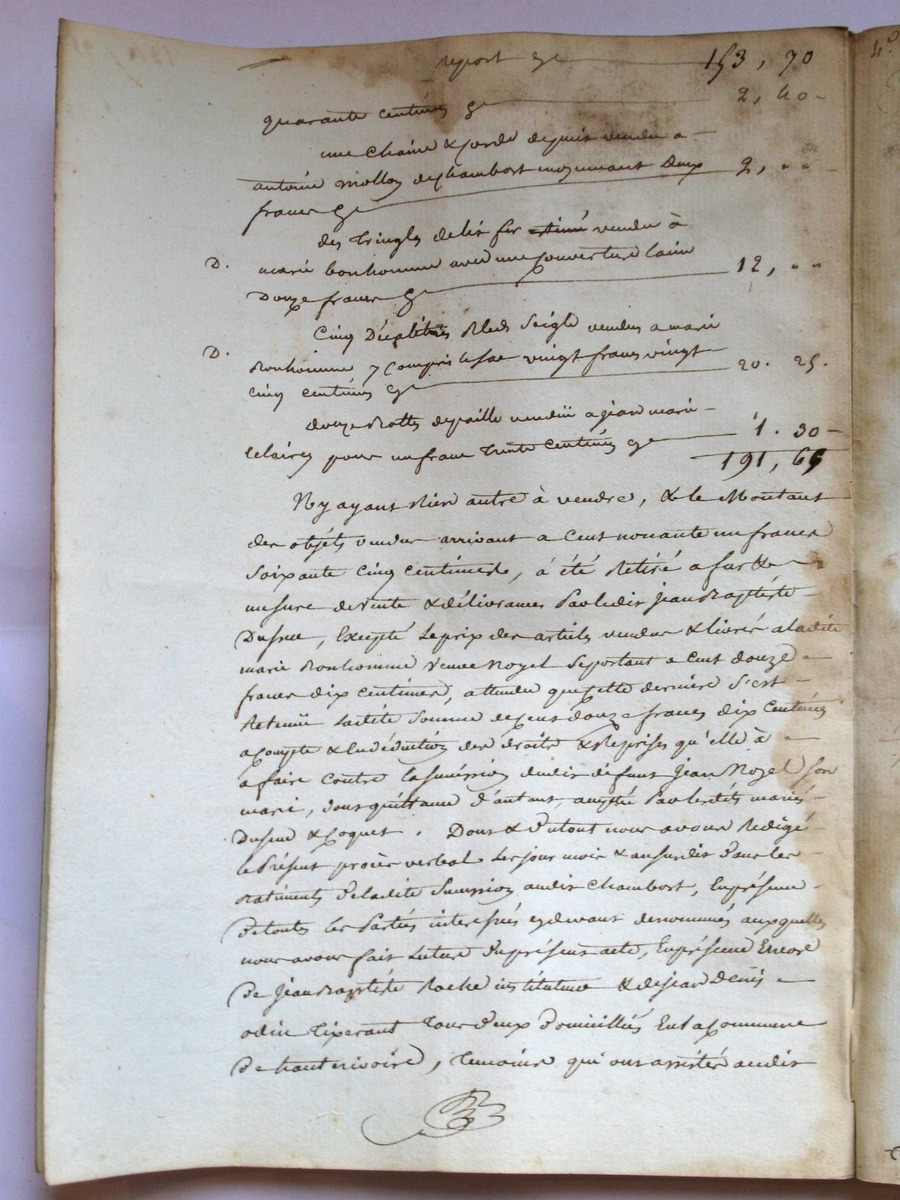 report cy 153, 70
quarante centimes cy 2, 40
une chaine & corde de puit vendu a
antoine mollon de chambort moyennant Deux
francs cy 2, " "
des tringles de lit fer estimé vendu à
D. marie bonhomme avec une couverture laine
Douze francs cy 12, " "
Cinq Décalitres Bled Seigle vendus a marie
D. Bonhomme y compris le sac vingt francs vingt
cinq centimes cy 20. 25.
douze Bottes de paille vendüe a jean marie
pour un franc trente centimes cy 1. 30
191, 65
N'y ayant Rien autre à vendre, & le Montant
des objets vendus arrivant a Cent nonante un francs
Soixante Cinq Centimes, à été Retiré a fur &
mesure de vente & délivrances Par ledit Jean Baptiste
Excepté Le prix des articles vendus & livrés a ladite
marie Bonhomme veuve Noyel Se portant a Cent douze
francs dix Centimes, attendu que cette derniere S'est
Retenüe Ladite Somme de Cent douze francs dix Centimes
a Compte & En déduction des droits & Reprises qu'elle à
a faire Contre la Succéssion dudit défunt Jean Noyel Son
marie, dont quittance d'autant, par lesdits mariés
& Coquet. Dont & Du tout nous avons Rédigé
le Présent procès verbal Les jour mois & an susdit Dans les
Batiments De ladite Sucession audit Chambort, En présence
De toutes les Parties interessés cy devant denommés auxquelles
nous avons fait Lecture Du présent acte, En présence Encore
De Jean Baptiste Roche instituteur & de jean Denis
odin tixerant tous Deux Domiciliés En la Commune
De hauterivoire, Temoins qui ont assistés audit